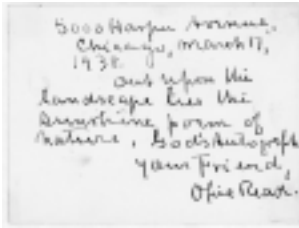 5000 Harper Avenue,
Chicago, March 17,
1938.
Out upon the
landscape lies the
sunshine poem of
nature, God's Autograph
Your Friend,
Opie Read.